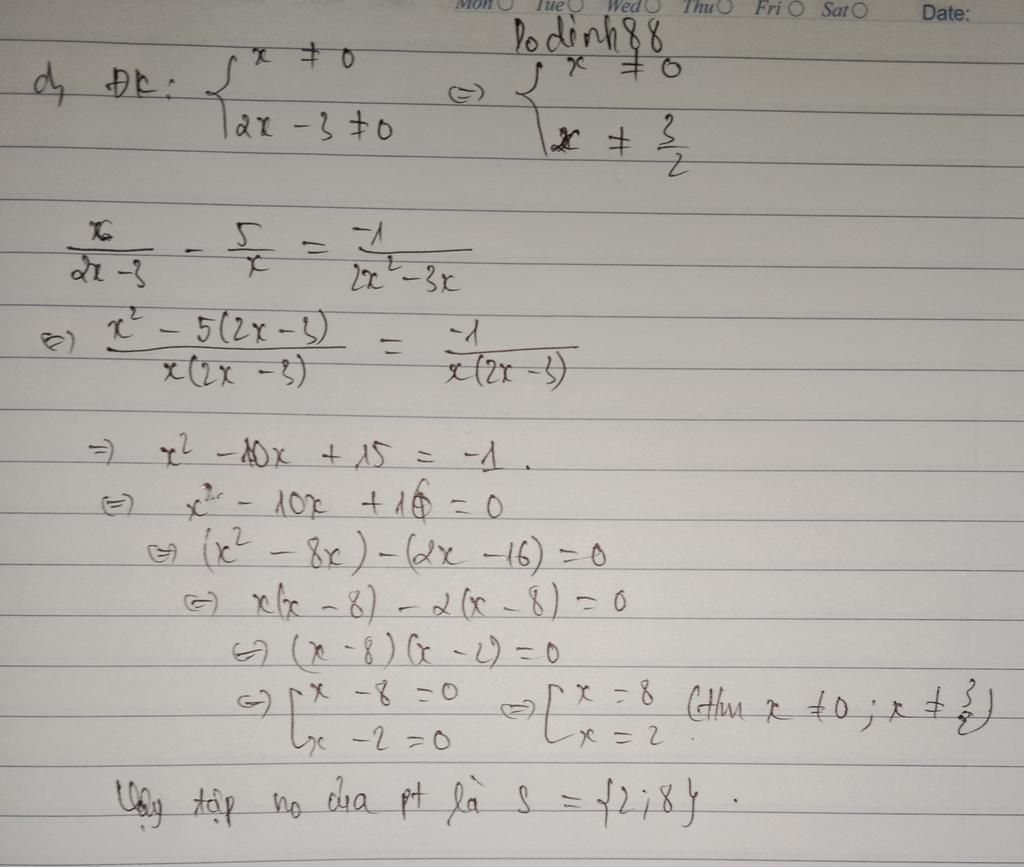 Mon Tue Wed Thu Fri Sat Date:
Dodinh88
d, ĐK: { x ≠ 0 ; 2x - 3 ≠ 0 <=> { x ≠ 0 ; x ≠ 3/2
x/(2x - 3) - 5/x = -1/(2x² - 3x)
<=> (x² - 5(2x - 3))/(x(2x - 3)) = -1/(x(2x - 3))
=> x² - 10x + 15 = -1.
<=> x² - 10x + 16 = 0
<=> (x² - 8x) - (2x - 16) = 0
<=> x(x - 8) - 2(x - 8) = 0
<=> (x - 8)(x - 2) = 0
<=> [ x - 8 = 0 ; x - 2 = 0 <=> [ x = 8 ; x = 2 (thm x ≠ 0 ; x ≠ 3/2)
Vậy tập no của pt là S = {2;8}.